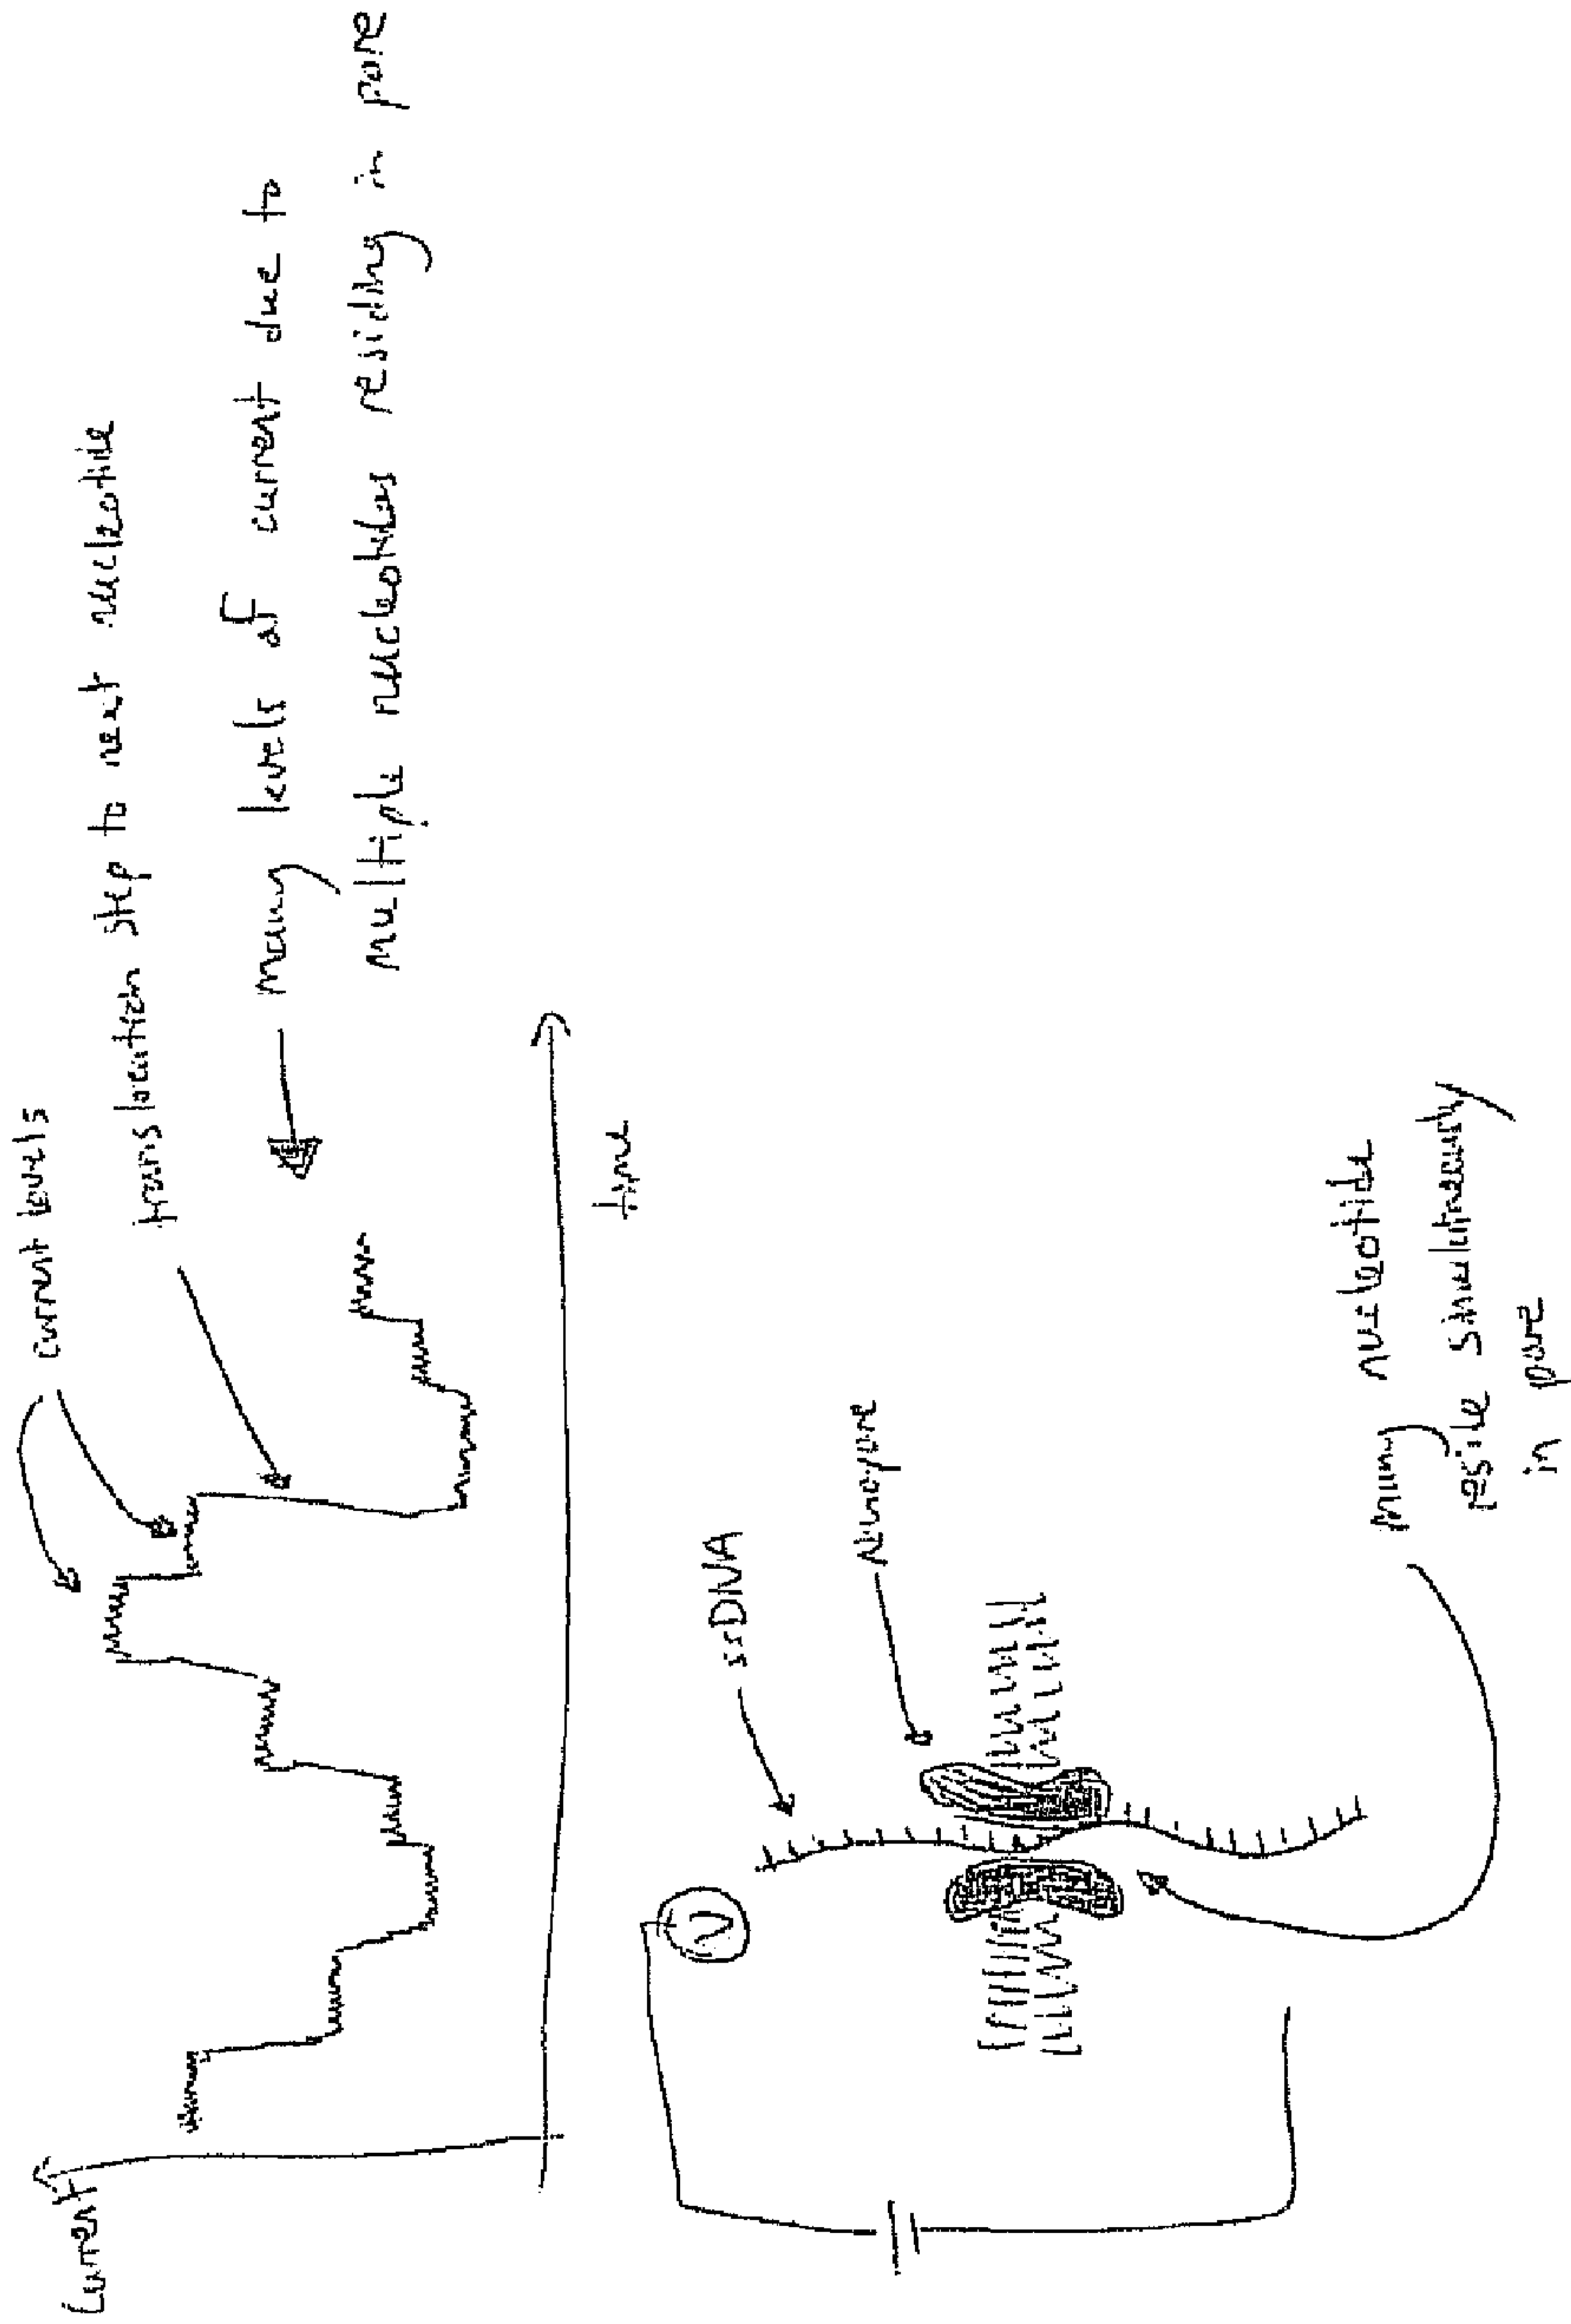 Current
current levels
translocation step to next nucleotide
many levels of current due to
multiple nucleotides residing in pore
time
V
ssDNA
Nanopore
many nucleotide
reside simultaneously
in pore